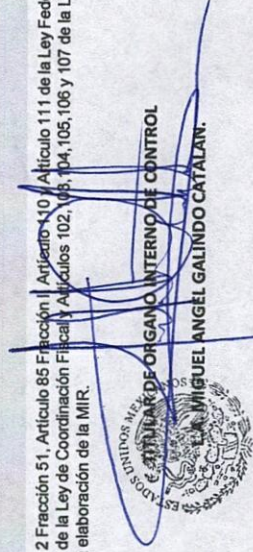 2 Fracción 51, Artículo 85 Fracción I, Artículo 110 y Artículo 111 de la Ley Fed
de la Ley de Coordinación Fiscal y Artículos 102, 103, 104,105,106 y 107 de la L
elaboración de la MIR.
TITULAR DE ORGANO INTERNO DE CONTROL
L.A. MIGUEL ANGEL GALINDO CATALAN.
ESTADOS UNIDOS MEX